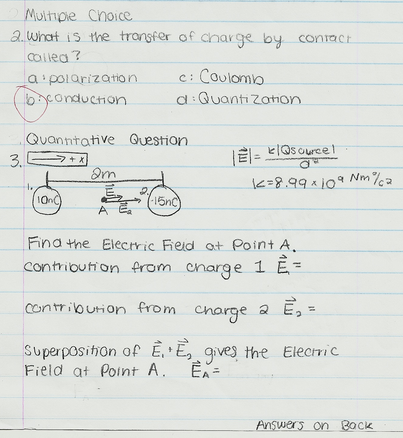 Multiple Choice
2. What is the transfer of charge by contact
called?
a: polarization c: Coulomb
b: conduction d: Quantization
Quantitative Question
3. → +x
|E⃗| = k|Qsource| / d²
2m
K = 8.99 x 10⁹ Nm²/c²
1. E⃗ 2.
10nC A E⃗₂ -15nC
Find the Electric Field at Point A.
contribution from charge 1 E⃗ =
contribution from charge 2 E⃗₂ =
Superposition of E⃗₁ + E⃗₂ gives the Electric
Field at Point A. E⃗A =
Answers on Back